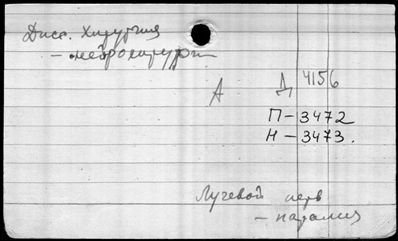 Дисс. Хирургия
– нейрохирургия
А Д 4156
П – 3472
Н – 3473.
Лучевой нерв
– паралич